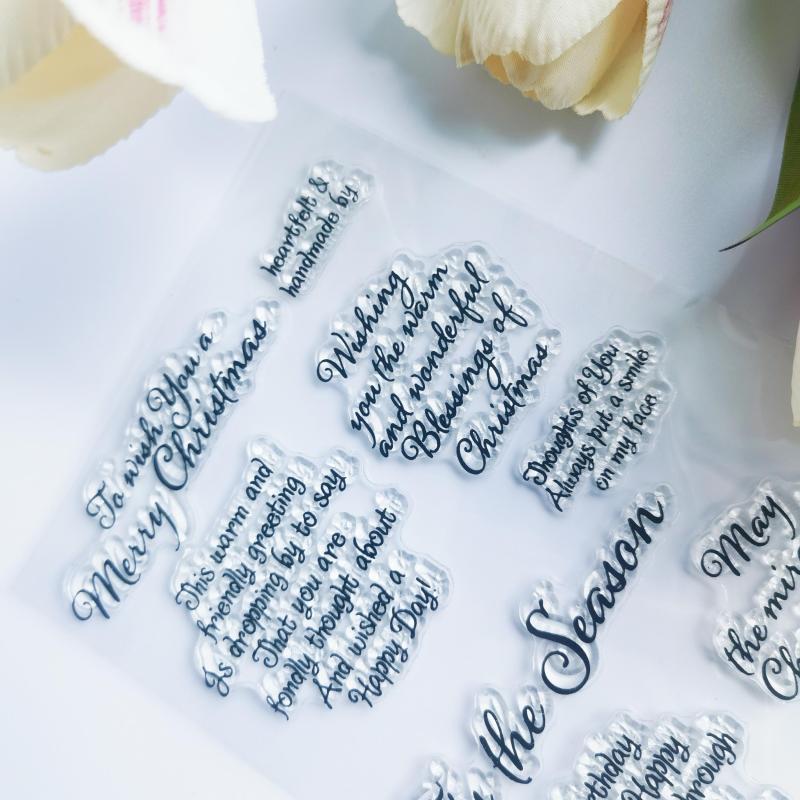 heartfelt &
handmade by
To wish You a
Merry Christmas
Wishing
you the warm
and wonderful
Blessings of
Christmas
Thoughts of You
Always put a smile
on my face.
This warm and
friendly greeting
Is dropping by to say
That you are
fondly thought about
And wished a
Happy Day!
the Season
May
the
Happy